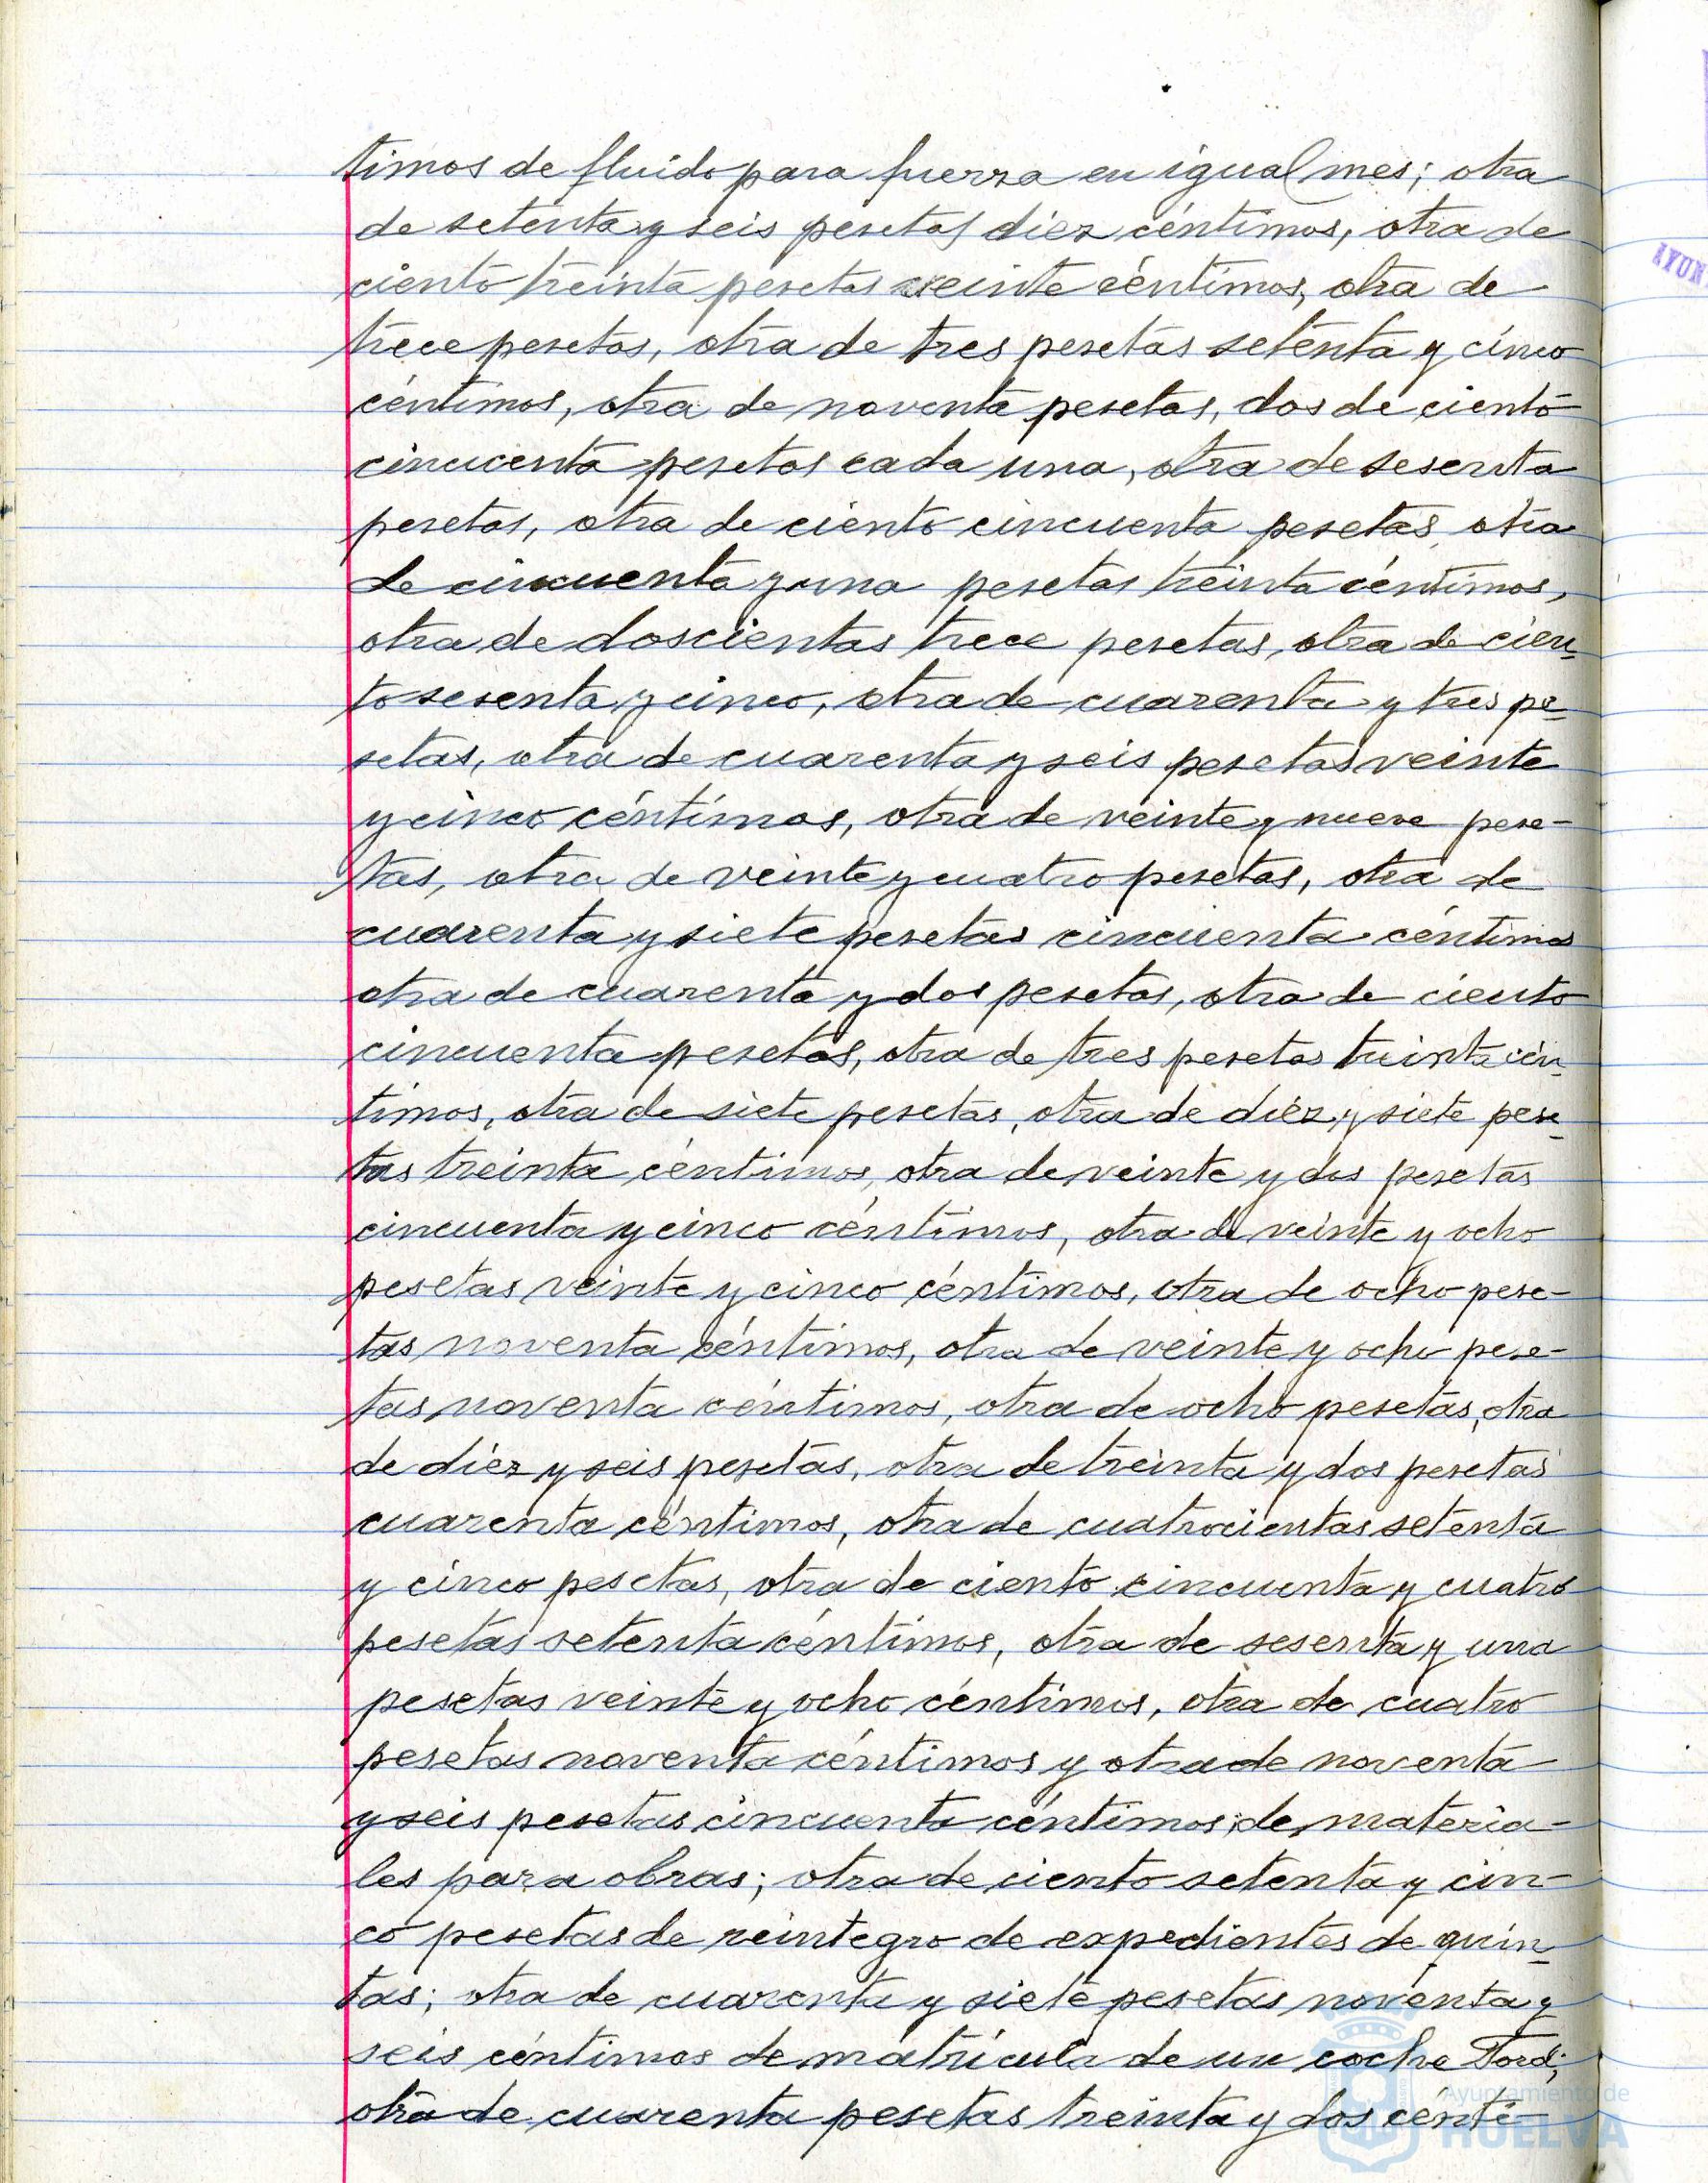 timos de fluido para fuerza en igual mes; otra
de setenta y seis pesetas diez céntimos, otra de
ciento treinta pesetas veinte céntimos, otra de
trece pesetas, otra de tres pesetas setenta y cinco
céntimos, otra de noventa pesetas, dos de ciento
cincuenta pesetas cada una, otra de sesenta
pesetas, otra de ciento cincuenta pesetas, otra
de cincuenta y una pesetas treinta céntimos,
otra de doscientas trece pesetas, otra de cien-
to sesenta y cinco, otra de cuarenta y tres pe-
setas, otra de cuarenta y seis pesetas veinte
y cinco céntimos, otra de veinte y nueve pese-
tas, otra de veinte y cuatro pesetas, otra de
cuarenta y siete pesetas cincuenta céntimos
otra de cuarenta y dos pesetas, otra de ciento
cincuenta pesetas, otra de tres pesetas treinta cén-
timos, otra de siete pesetas, otra de diez y siete pese-
tas treinta céntimos, otra de veinte y dos pesetas
cincuenta y cinco céntimos, otra de veinte y ocho
pesetas veinte y cinco céntimos, otra de ocho pese-
tas noventa céntimos, otra de veinte y ocho pese-
tas noventa céntimos, otra de ocho pesetas, otra
de diez y seis pesetas, otra de treinta y dos pesetas
cuarenta céntimos, otra de cuatrocientas setenta
y cinco pesetas, otra de ciento cincuenta y cuatro
pesetas setenta céntimos, otra de sesenta y una
pesetas veinte y ocho céntimos, otra de cuatro
pesetas noventa céntimos y otra de noventa
y seis pesetas cincuenta céntimos, de materia-
les para obras; otra de ciento setenta y cin-
co pesetas de reintegro de expedientes de quin-
tas; otra de cuarenta y siete pesetas noventa y
seis céntimos de matrícula de un coche Ford;
otra de cuarenta pesetas treinta y dos cénti-
AYUN
Ayuntamiento de
HUELVA